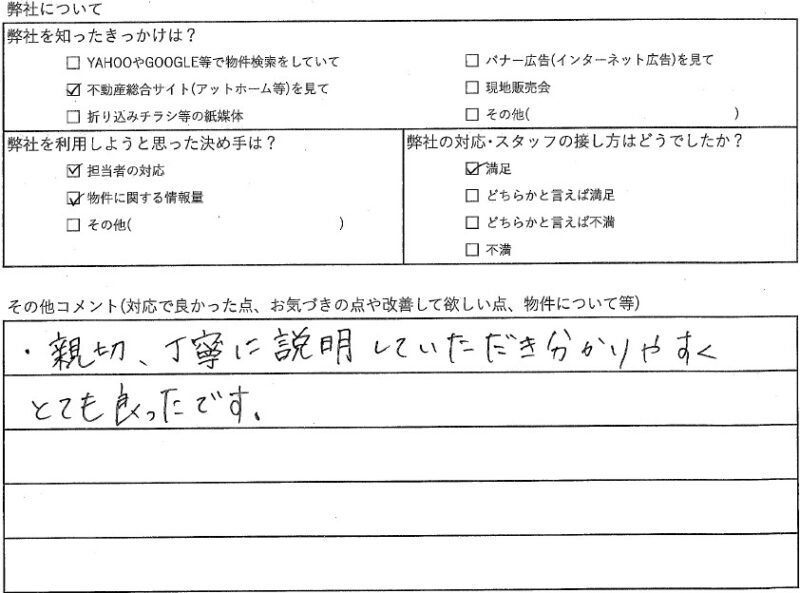 弊社について
弊社を知ったきっかけは？
☐ YAHOOやGOOGLE等で物件検索をしていて
☐ バナー広告(インターネット広告)を見て
☑ 不動産総合サイト(アットホーム等)を見て
☐ 現地販売会
☐ 折り込みチラシ等の紙媒体
☐ その他( )
弊社を利用しようと思った決め手は？
☑ 担当者の対応
☑ 物件に関する情報量
☐ その他( )
弊社の対応・スタッフの接し方はどうでしたか？
☑ 満足
☐ どちらかと言えば満足
☐ どちらかと言えば不満
☐ 不満
その他コメント(対応で良かった点、お気づきの点や改善して欲しい点、物件について等)
・親切、丁寧に説明していただき分かりやすく
とても良ったです。